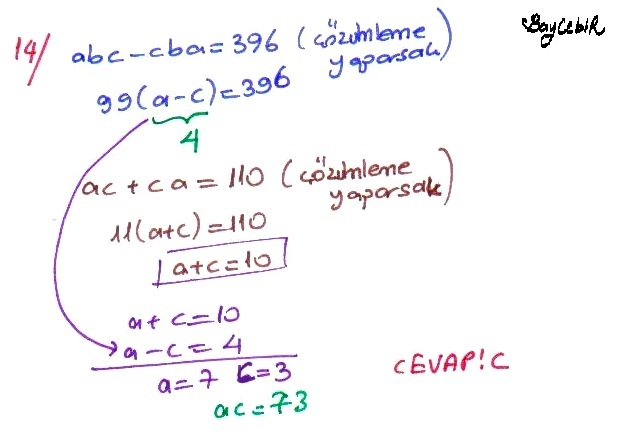 BaycebiR
14/ abc - cba = 396 (çözümleme yaparsak)
99(a-c) = 396
4
ac + ca = 110 (çözümleme yaparsak)
11(a+c) = 110
a+c = 10
a + c = 10
a - c = 4
a = 7 c = 3
ac = 73
CEVAP!C